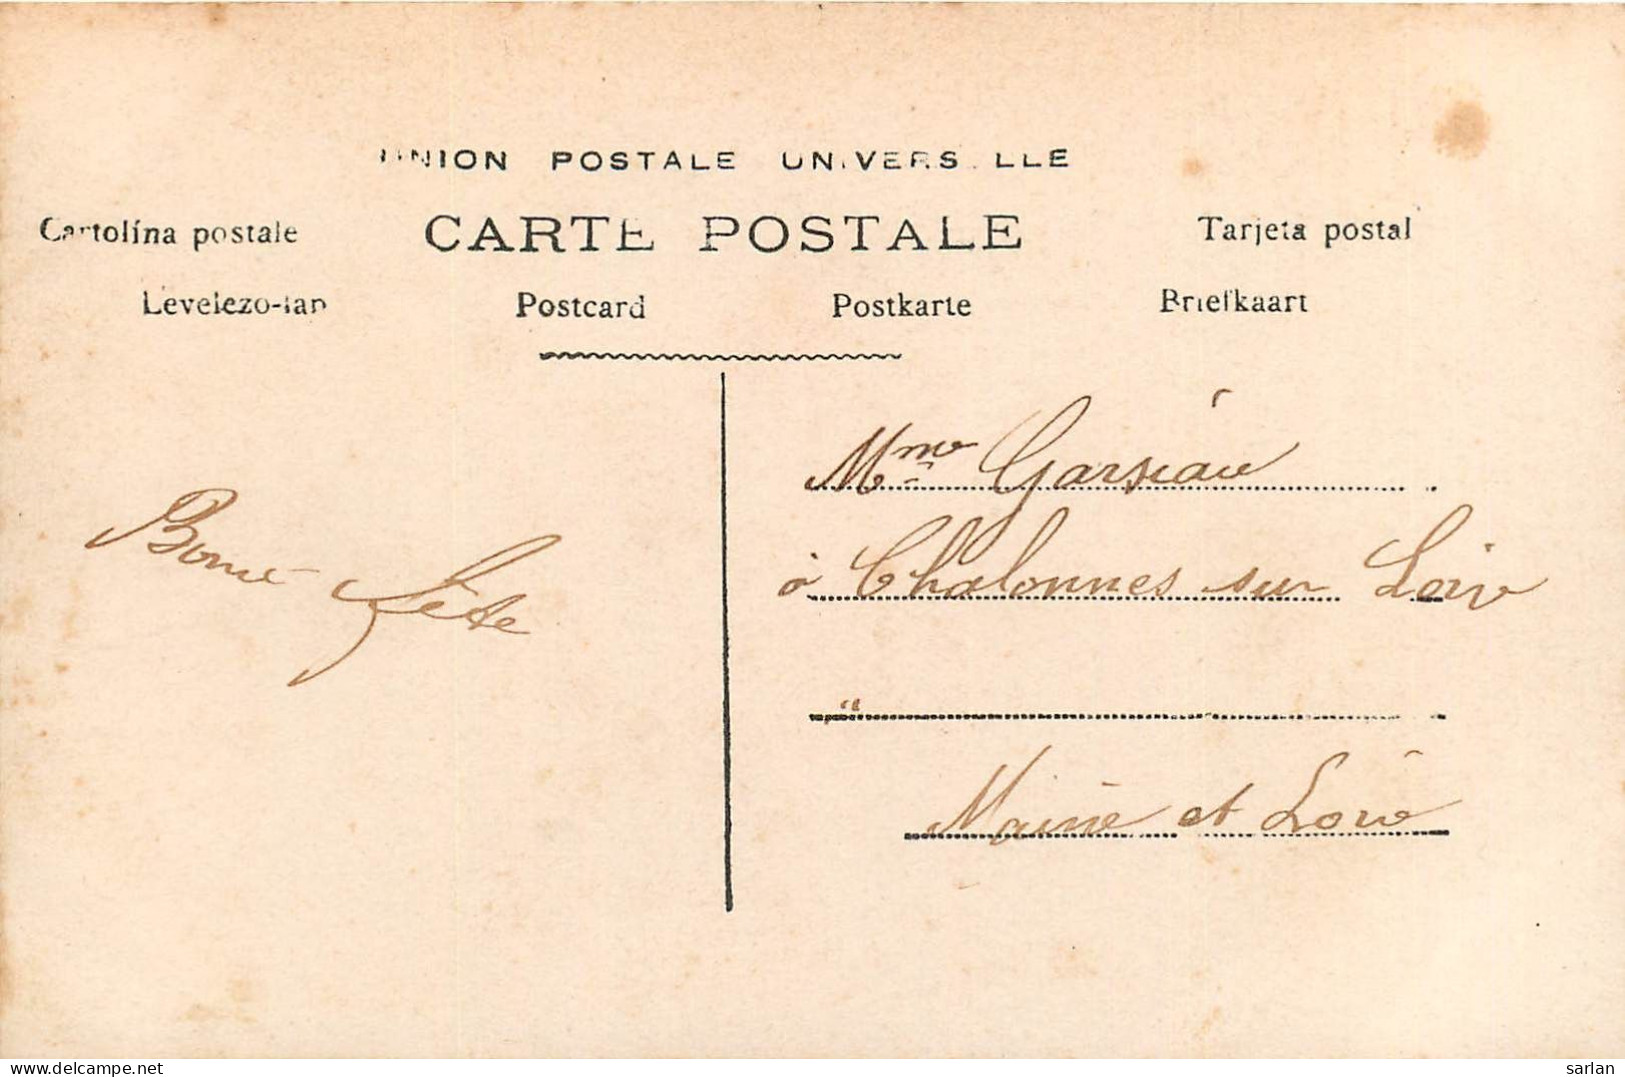 UNION POSTALE UNIVERSELLE
Cartolína postale CARTE POSTALE Tarjeta postal
Levelezo-lap Postcard Postkarte Briefkaart
Bonne fête
Mme Garsiau
à Chalonnes sur Loire
Maine et Loire
delcampe.net
sarlan